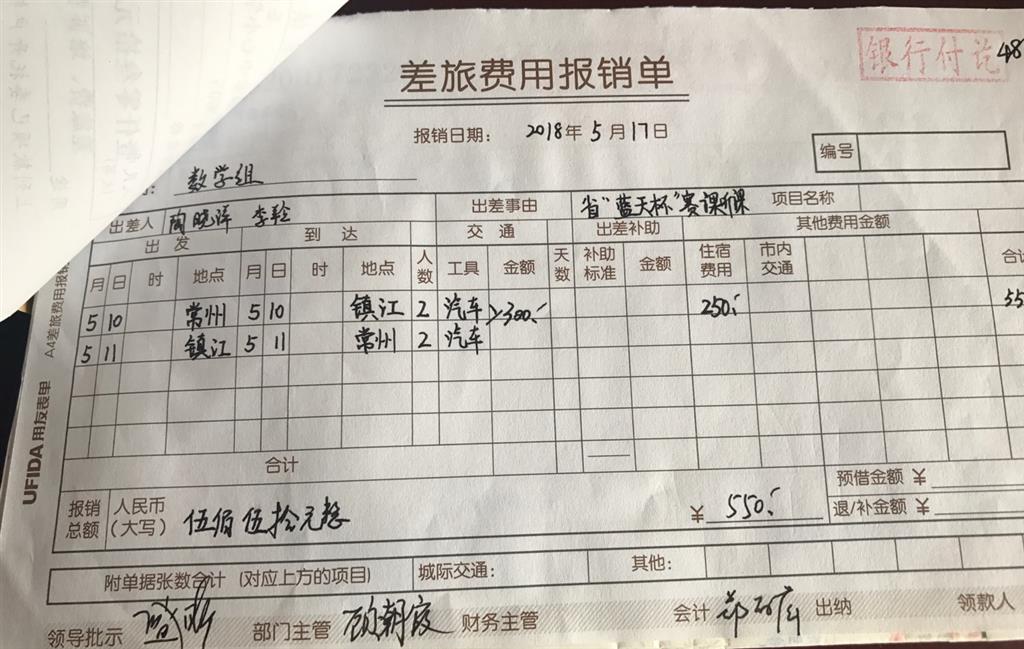 银行付讫
48
差旅费用报销单
报销日期: 2018年5月17日
编号
数学组
出差人 陶晓洋 李玲 出差事由 省"蓝天杯"赛课听课 项目名称
出发 到达 交通 出差补助 其他费用金额
月 日 时 地点 月 日 时 地点 人数 工具 金额 天数 补助标准 金额 住宿费用 市内交通 合计
5 10 常州 5 10 镇江 2 汽车 >300.- 250.- 55
5 11 镇江 5 11 常州 2 汽车
合计
预借金额 ¥
报销总额 人民币(大写) 伍佰伍拾元整 ¥ 550.- 退/补金额 ¥
附单据张数合计 (对应上方的项目) 城际交通: 其他:
领导批示 部门主管 顾朝霞 财务主管 会计 出纳 领款人
A4差旅费用报销
UFIDA 用友表单